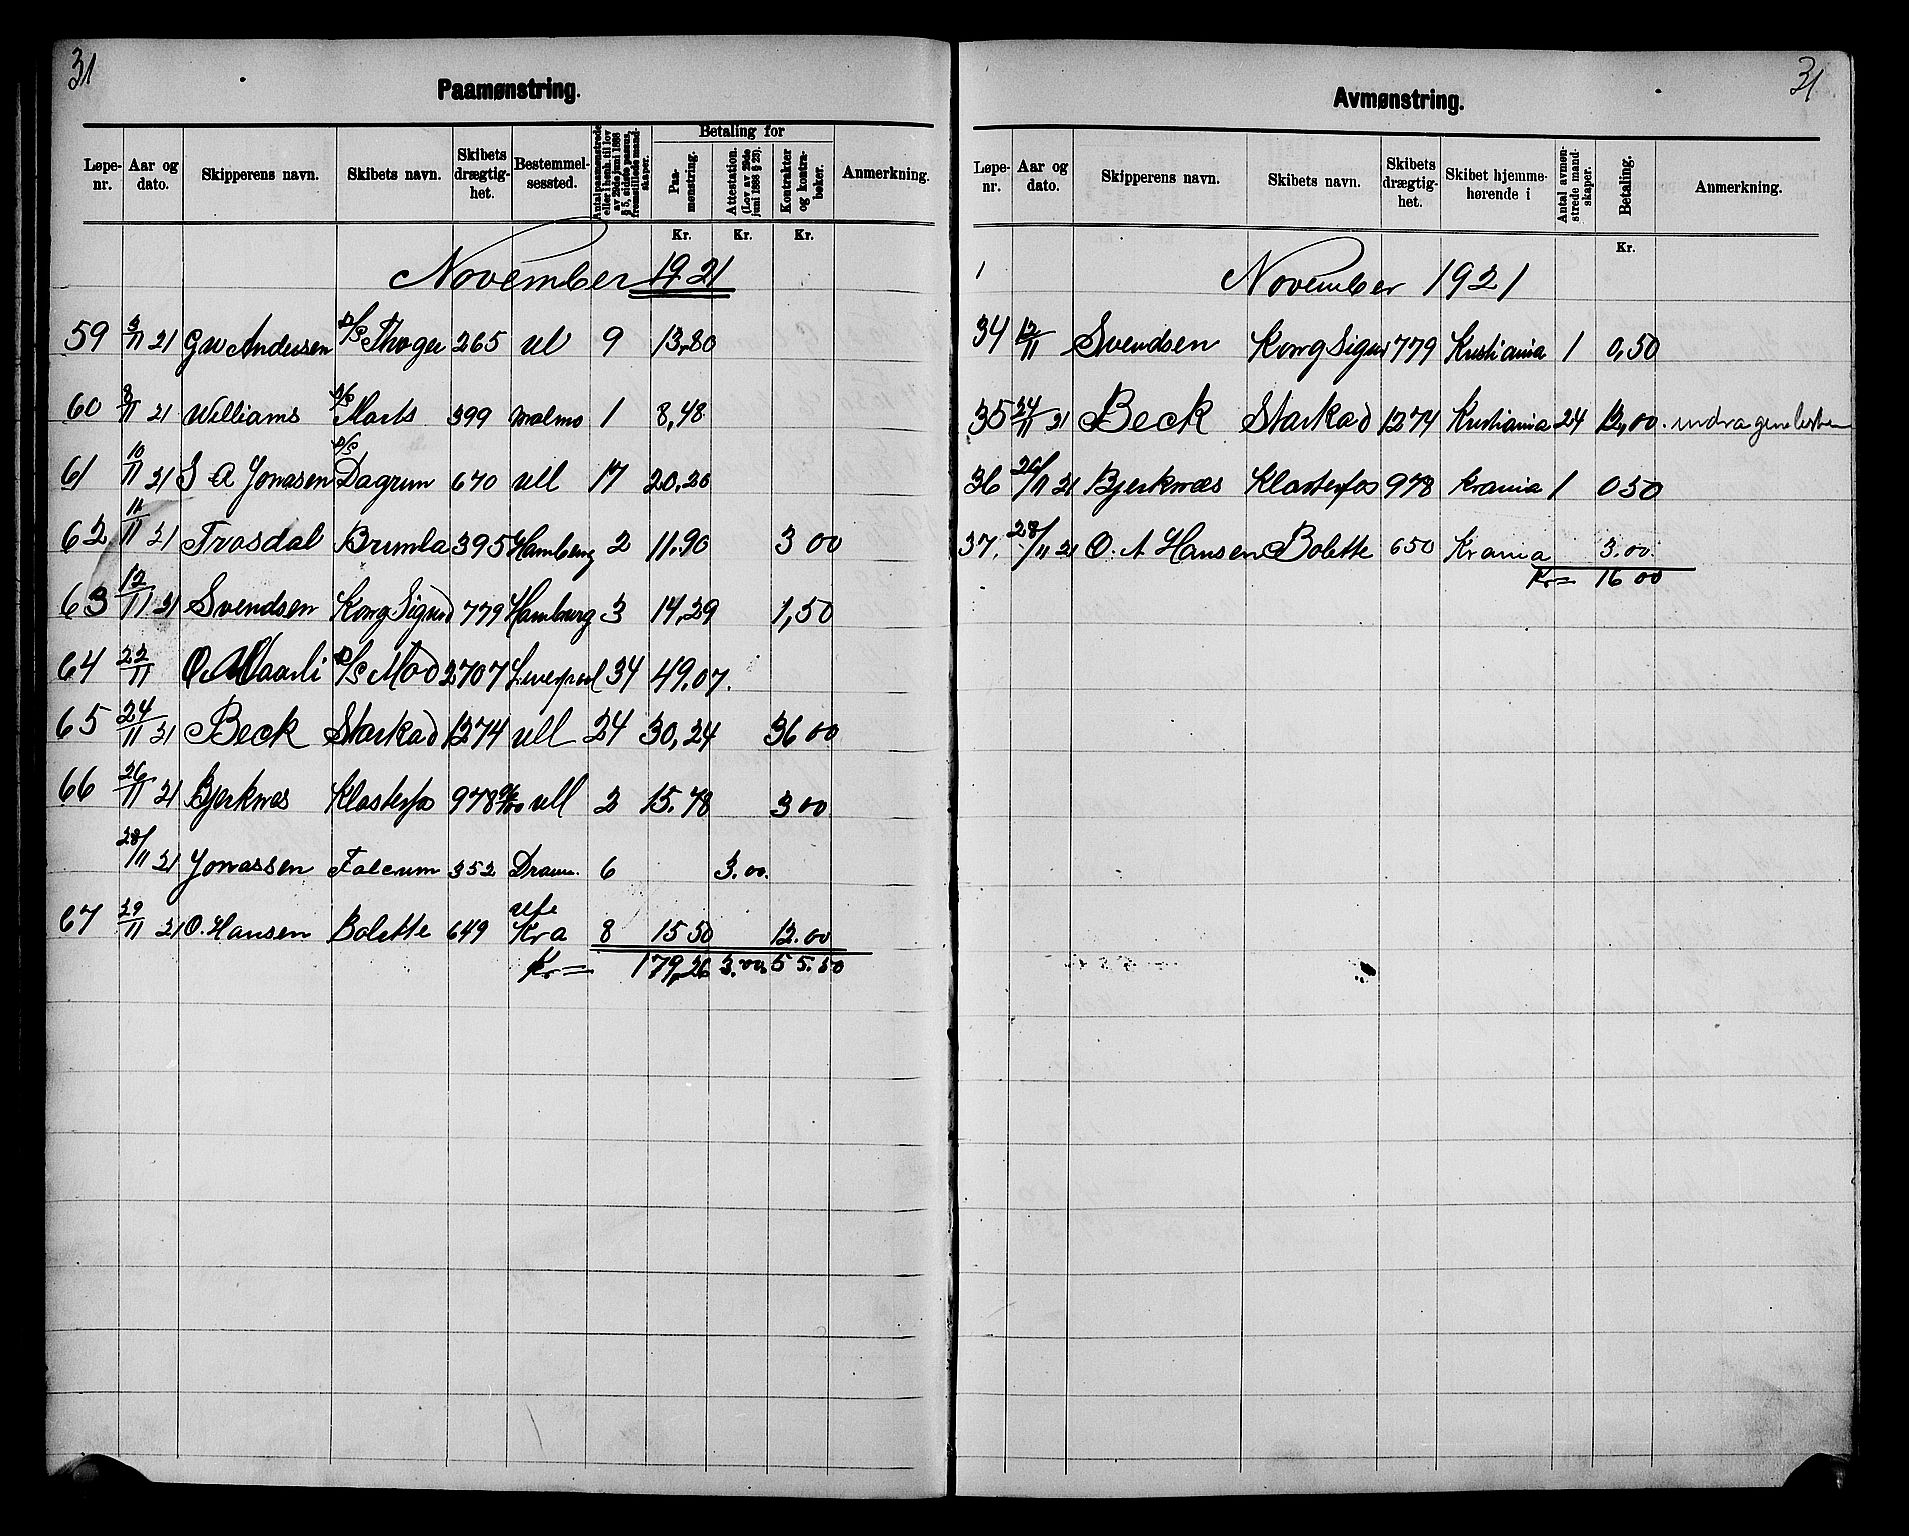 31
Paamønstring.
Løpe-nr. Aar og dato. Skipperens navn. Skibets navn. Skibets drægtighet. Bestemmelsessted. Antal paamønstrede eller i henh. til lov av 29de juni 1888 § 5, sidste passus, fremstillede mandskaper. Betaling for Paamønstring. Attestation. (Lov av 29de juni 1888 § 23). Kontrakter og kontrabøker. Anmerkning.
Kr. Kr. Kr.
November 1921
59 3/11 21 G W Andersen D/S Thoger 265 ul 9 13,80
60 9/11 21 Williams 399 Malmo 1 8,48
61 10/11 21 S A Jonasen D/S Dagrun 670 ull 17 20,20
62 11/11 21 Trosdal Brumla 395 Hamburg 2 11.90 3 00
63 12/11 21 Svendsen Kong Sigurd 779 Hamburg 3 14,29 1,50
64 22/11 D/S Mod 2707 Liverpool 34 49.07.
65 24/11 21 Beck Starkad 1274 ull 24 30,24 36 00
66 26/11 21 Bjerknæs Klosterfos 978 ull 2 15.78 3 00
28/11 21 Jonassen Falcrum 352 Dram. 6 3.00.
67 29/11 21 O. Hansen Bolette 649 Kra 8 15 50 12.00
Kr= 179,26 3.00, 55.50
31
Avmønstring.
Løpe-nr. Aar og dato. Skipperens navn. Skibets navn. Skibets drægtighet. Skibet hjemmehørende i Antal avmønstrede mandskaper. Betaling. Anmerkning.
Kr.
November 1921
34 12/11 Svendsen Kong Sigurd 779 Kristiania 1 0,50
35 24/11 21 Beck Starkad 1274 Kristiania 24 12,00.
36 26/11 21 Bjerknæs Klosterfos 978 Krania 1 0 50
37. 28/11 21 O. A Hansen Bolette 650 Krania 3.00.
Kr= 16 00